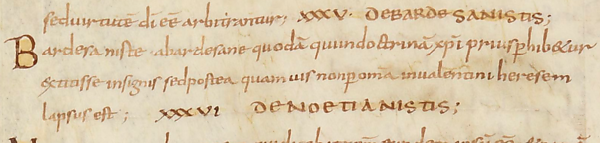 seduirtutē dī eē arbitrantur, XXXV. DEBARDESANISTIS;
Bardesaniste abardesane quodā quiindoctrinā xp̄i prius phibetur
extitisse insignis sed postea quamuis nonp omā inualentini heresem
lapsus est; XXXVI DENOETIANISTIS;